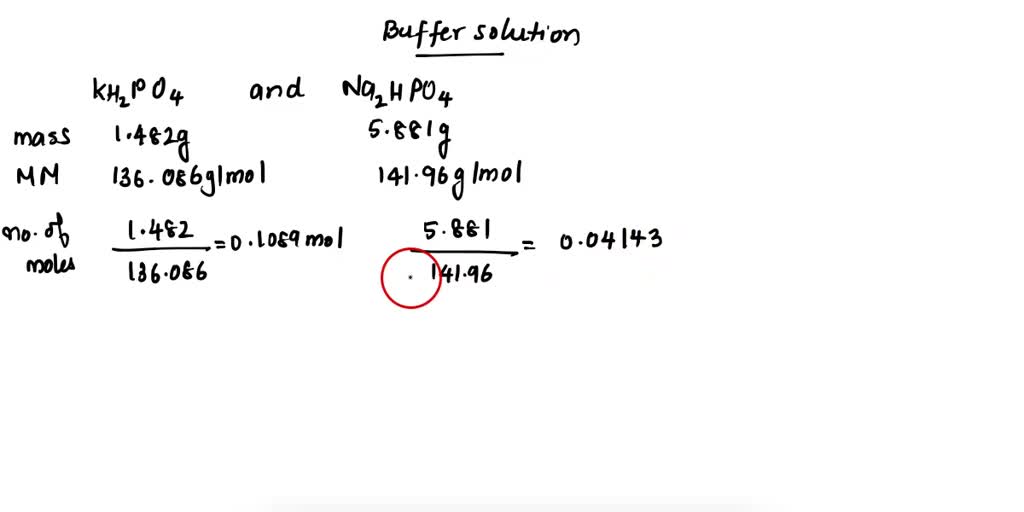 Buffer solution
KH2PO4 and Na2HPO4
mass 1.482g 5.881g
MM 136.086g/mol 141.96g/mol
no. of moles 1.482/136.086 = 0.1089 mol 5.881/141.96 = 0.04143